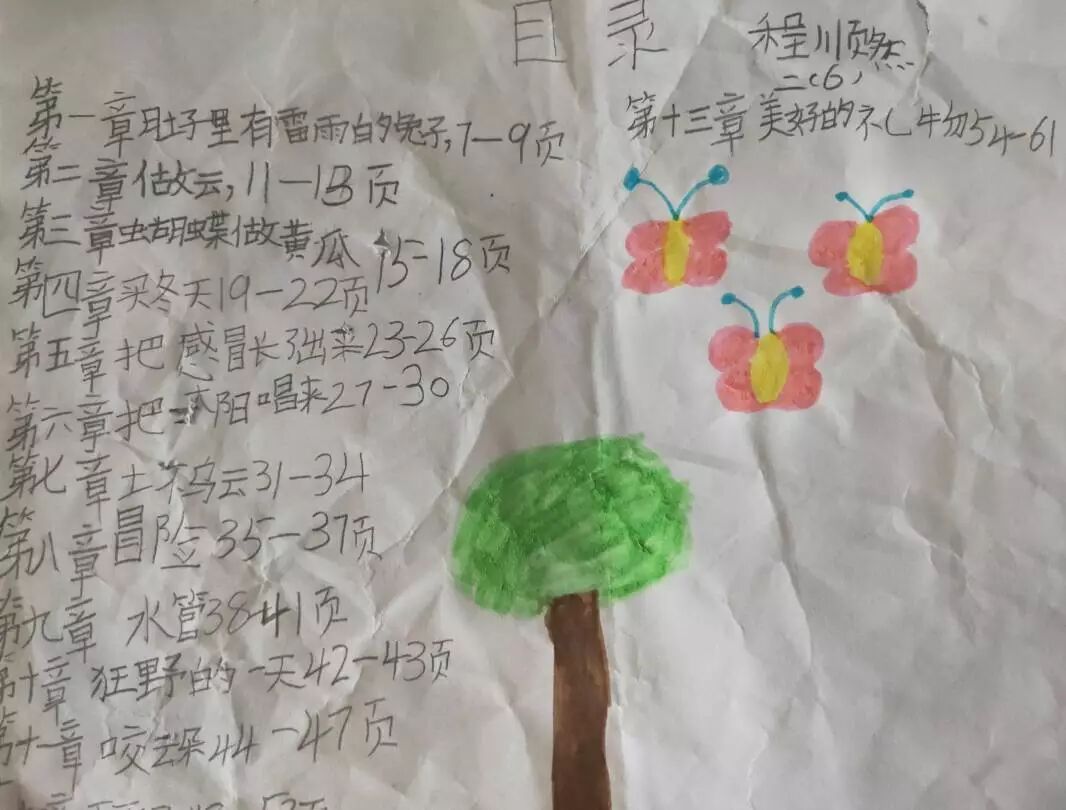 目录
程顺然
二(6)
第一章肚子里有雷雨的兔子,7—9页
第二章做云,11—13页
第三章蝴蝶做黄瓜 15-18页
第四章买冬天19—22页
第五章把感冒长出来23-26页
第六章把太阳唱来27-30
第七章 乌云31-34
第八章冒险35-37页
第九章 水管38-41页
第十章狂野的一天42-43页
第十一章咬云朵44-47页
第十三章美好的礼物54-61